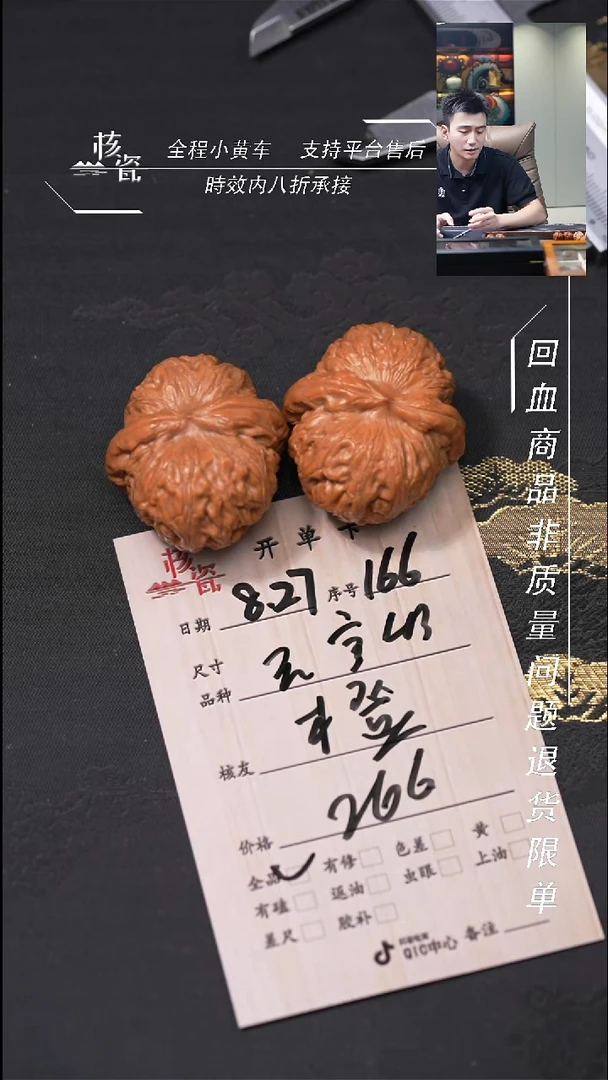 核瓷
全程小黄车 支持平台售后
時效内八折承接
回血商品非质量问题退货限单
核瓷
开单卡
日期 8.27 序号 166
尺寸
品种
核友
价格 266
全品 有修 色差 黄
有磕 返油 虫眼 上油
差尺 胶补
QIC中心 备注